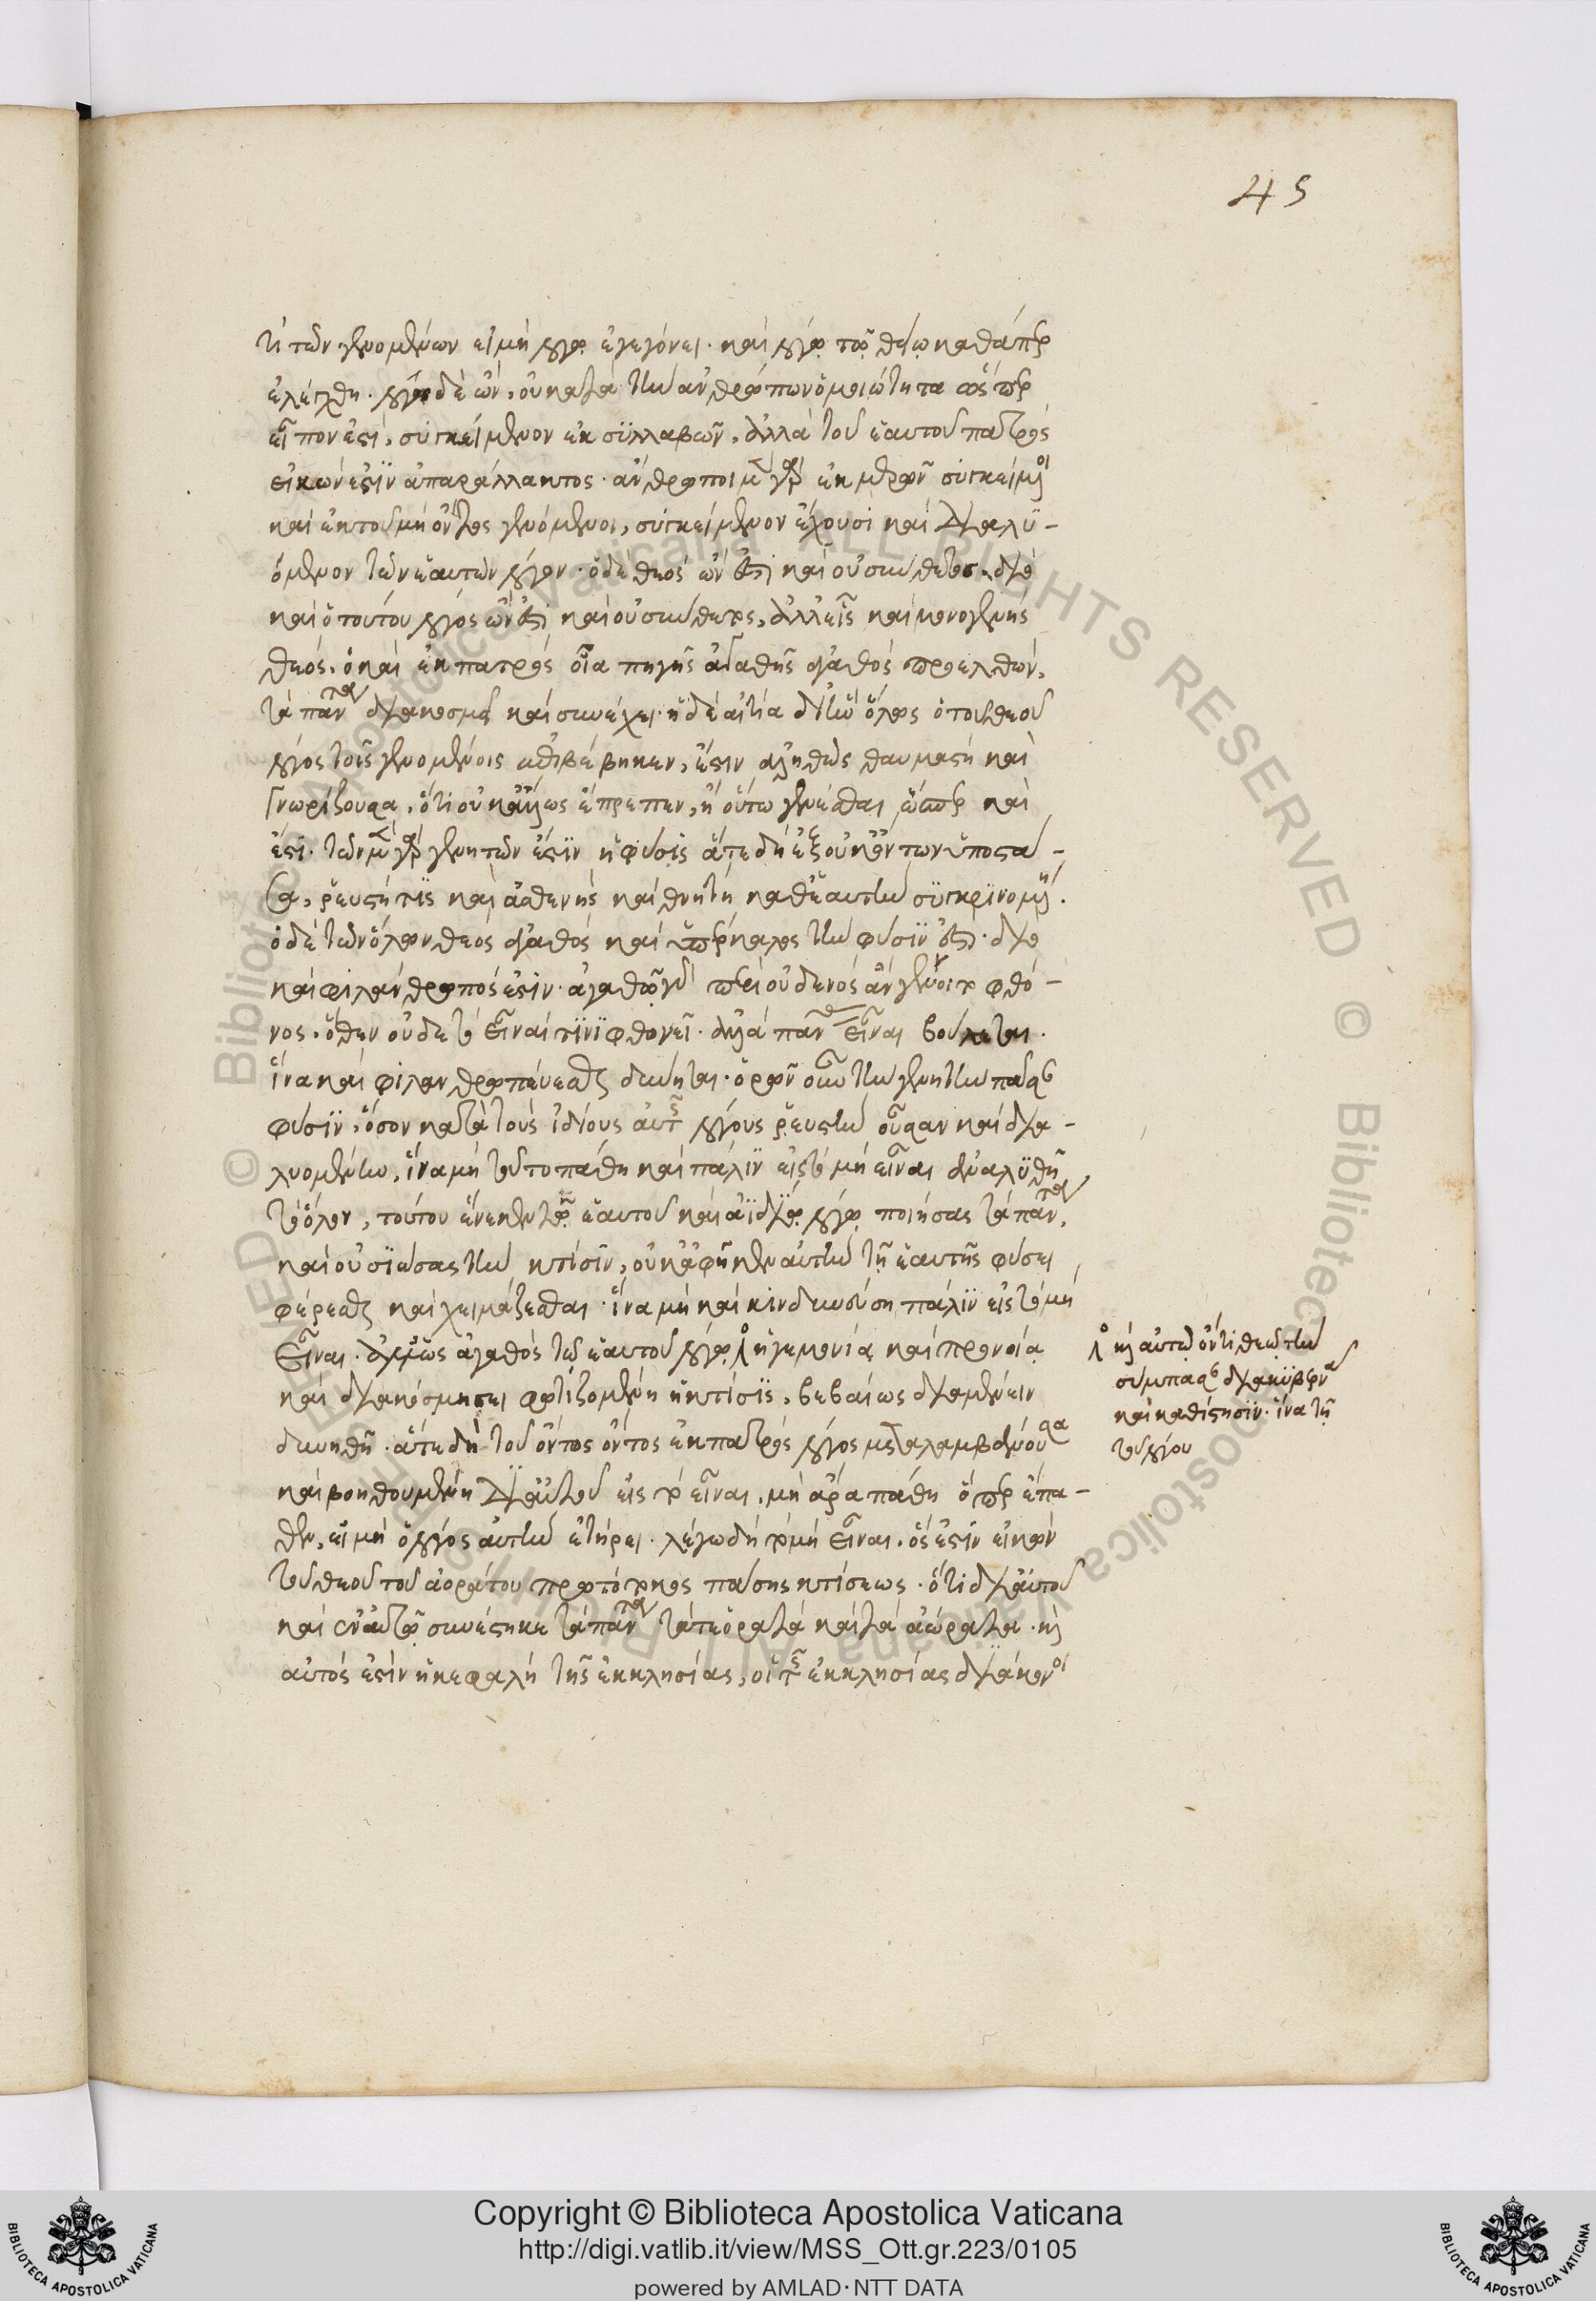 45
τι τῶν γενομένων εἰ μὴ λόγῳ ἐγεγόνει. καὶ λόγῳ τῷ θείῳ καθάπερ
ἐλέχθη. λόγος δὲ ὢν, οὐ κατὰ τὴν ἀνθρώπων ὁμοιότητα ὥσπερ
εἶπον ἐστὶ, συγκείμενον ἐκ συλλαβῶν, ἀλλὰ τοῦ ἑαυτοῦ πατρός
εἰκών ἐστὶν ἀπαράλλακτος. ἄνθρωποι μὲν γὰρ ἐκ μερῶν συγκείμενοι
καὶ ἐκ τοῦ μὴ ὄντος γενόμενοι, συγκείμενον ἔχουσι καὶ διαλυ-
όμενον τὸν ἑαυτῶν λόγον. ὁ δὲ θεός ὤν ἐστι καὶ οὐ σύνθετος. διὸ
καὶ ὁ τούτου λόγος ὤν ἐστι καὶ οὐ σύνθετος, ἀλλ' εἷς καὶ μονογενής
θεός. ὁ καὶ ἐκ πατρός οἷα πηγῆς ἀγαθῆς ἀγαθός προελθών,
τὰ πάντα διακοσμεῖ καὶ συνέχει. ἡ δὲ αἰτία δι' ἣν ὅλως ὁ τοῦ θεοῦ
λόγος τοῖς γενομένοις ἐπιβέβηκεν, ἔστιν ἀληθῶς θαυμαστὴ καὶ
γνωρίζουσα, ὅτι οὐκ ἄλλως ἔπρεπεν, ἢ οὕτω γενέσθαι ὥσπερ καὶ
ἔστι. τῶν μὲν γὰρ γενητῶν ἐστὶν ἡ φύσις ἅτε δὴ ἐξ οὐκ ὄντων ὑποστᾶ-
σα, ῥευστή τις καὶ ἀσθενής καὶ θνητὴ καθ' ἑαυτὴν συγκρινομένη.
ὁ δὲ τῶν ὅλων θεός ἀγαθός καὶ ὑπέρκαλος τὴν φύσιν ἐστι. διὸ
καὶ φιλάνθρωπός ἐστιν. ἀγαθῷ γὰρ περὶ οὐδενός ἂν γένοιτο φθό-
νος. ὅθεν οὐδὲ τὸ εἶναί τινι φθονεῖ. ἀλλὰ πάντας εἶναι βούλεται.
ἵνα καὶ φιλανθρωπεύεσθαι δύνηται. ὁρῶν οὖν τὴν γενητὴν πᾶσαν
φύσιν, ὅσον κατὰ τοὺς ἰδίους αὐτῆς λόγους ῥευστὴν οὖσαν καὶ δια-
λυομένην, ἵνα μὴ τοῦτο πάθη καὶ πάλιν εἰς τὸ μὴ εἶναι ἀναλυθῇ
τὸ ὅλον, τούτου ἕνεκεν τῷ ἑαυτοῦ καὶ ἀϊδίῳ λόγῳ ποιήσας τὰ πάντα,
καὶ οὐσιώσας τὴν κτίσιν, οὐκ ἀφῆκεν αὐτὴν τῇ ἑαυτῆς φύσει
φέρεσθαι καὶ χειμάζεσθαι. ἵνα μὴ καὶ κινδυνεύση πάλιν εἰς τὸ μὴ
εἶναι. ἀλλ' ὡς ἀγαθὸς τῷ ἑαυτοῦ λόγῳ ἡγεμονίᾳ καὶ προνοίᾳ
καὶ διακόσμησει φωτιζομένη ἡ κτίσις, βεβαίως διαμένειν
δυνηθῇ. ἅτε δὴ τοῦ ὄντος ὄντος ἐκ πατρός λόγος μεταλαμβάνουσα
καὶ βοηθουμένη δι' αὐτοῦ εἰς τὸ εἶναι, μὴ ἄρα πάθη ὅπερ ἔπα-
θεν, εἰ μὴ ὁ λόγος αὐτὴν ἐτήρει. λέγω δὴ τὸ μὴ εἶναι. ὅς ἐστιν εἰκών
τοῦ θεοῦ τοῦ ἀοράτου πρωτότοκος πάσης κτίσεως. ὅτι δι' αὐτοῦ
καὶ ἐν αὐτῷ συνέστηκε τὰ πάντα τά τε ὁρατὰ καὶ τὰ ἀόρατα. καὶ
αὐτός ἐστὶν ἡ κεφαλὴ τῆς ἐκκλησίας, οἱ τῆς ἐκκλησίας διάκονοι
καὶ αὐτῷ ὄντι θεῷ τὴν
σύμπασαν διακυβερνᾶ
καὶ καθίστησιν. ἵνα τῇ
τοῦ λόγου
Copyright © Biblioteca Apostolica Vaticana
http://digi.vatlib.it/view/MSS_Ott.gr.223/0105
powered by AMLAD·NTT DATA
BIBLIOTECA APOSTOLICA VATICANA
BIBLIOTECA APOSTOLICA VATICANA